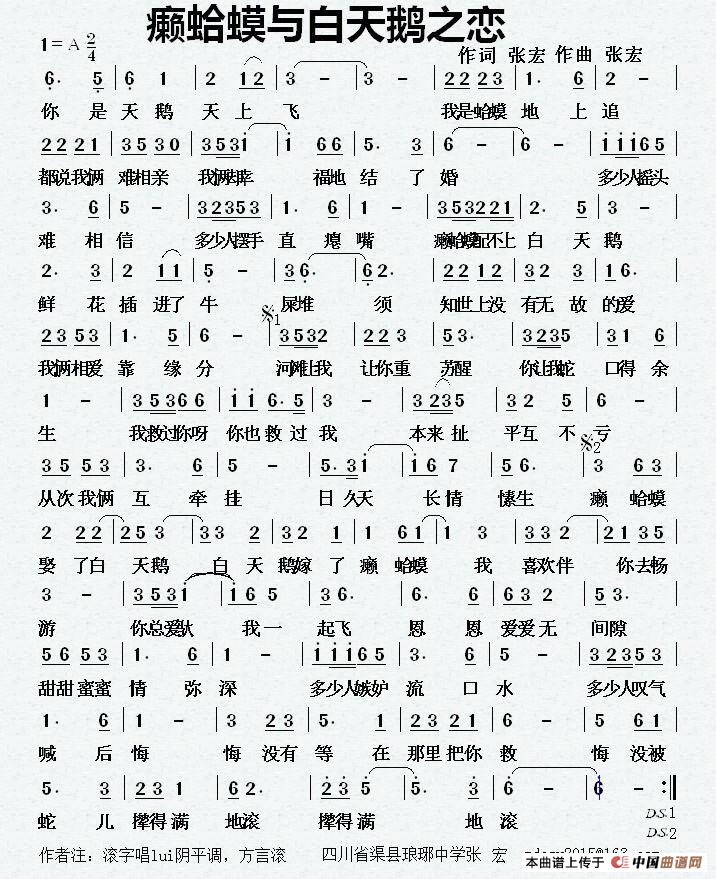 癞蛤蟆与白天鹅之恋
1=A 2/4
作词 张宏 作曲 张宏
6. 5 | 6 1 | 2 12 | 3 - | 3 - | 22 23 | 1. 6 | 2 - |
你是天鹅天上飞 我是蛤蟆地上追
22 21 | 35 30 | 3531 | 1 66 | 5. 3 | 6 - | 6 - | 11165 |
都说我俩难相亲 我俩却 福地结了婚 多少人摇头
3. 6 | 5 - | 32353 | 1. 6 | 1 - | 353221 | 2. 5 | 3 - |
难相信 多少人摆手直瘪嘴 癞蛤蟆配不上白天鹅
2. 3 | 2 11 | 5 - | 36. | 62. | 22 12 | 32 3 | 16. |
鲜花插进了牛屎堆 须知世上没有无故的爱
23 53 | 1. 5 | 6 - | 3532 | 22 3 | 53. | 3235 | 31 6 |
我俩相爱靠缘分 河滩让我让你重苏醒 你让我蛇口得余
1 - | 35366 | 11 6.5 | 3 - | 3235 | 32 5 | 6 - |
生 我救过你呀你也救过我 本来扯平互不亏
35 53 | 3. 6 | 1 - | 5.31 | 16 7 | 56. | 3 63 |
从次我俩互牵挂 日久天长情愫生 癞蛤蟆
2 22 | 25 3 | 33 2 | 32 1 | 1 61 | 1 3 | 332 | 21 35 |
娶了白天鹅 白天鹅嫁了癞蛤蟆 我喜欢伴你去畅
3 - | 3531 | 16 5 | 36. | 6. 6 | 63 2 | 53. |
游 你总爱 我一起飞 恩恩爱爱无间隙
56 53 | 2. 3 | 1 - | 11165 | 3. 6 | 5 - | 32353 |
甜甜蜜蜜情弥深 多少人嫉妒流口水 多少人叹气
1. 6 | 1 - | 3 23 | 5. 1 | 2323 | 6 - | 5 61 |
喊后悔 悔没有等在那里把你救 悔没被
5. 3 | 23 1 | 23 2. | 23 5 | 5. 3 | 6 - | 6 - :‖
蛇儿撵得满地滚 撵得满地滚
D.S.1
D.S.2
作者注：滚字唱lui阴平调，方言滚 四川省渠县琅琊中学张 宏
本曲谱上传于 中国曲谱网